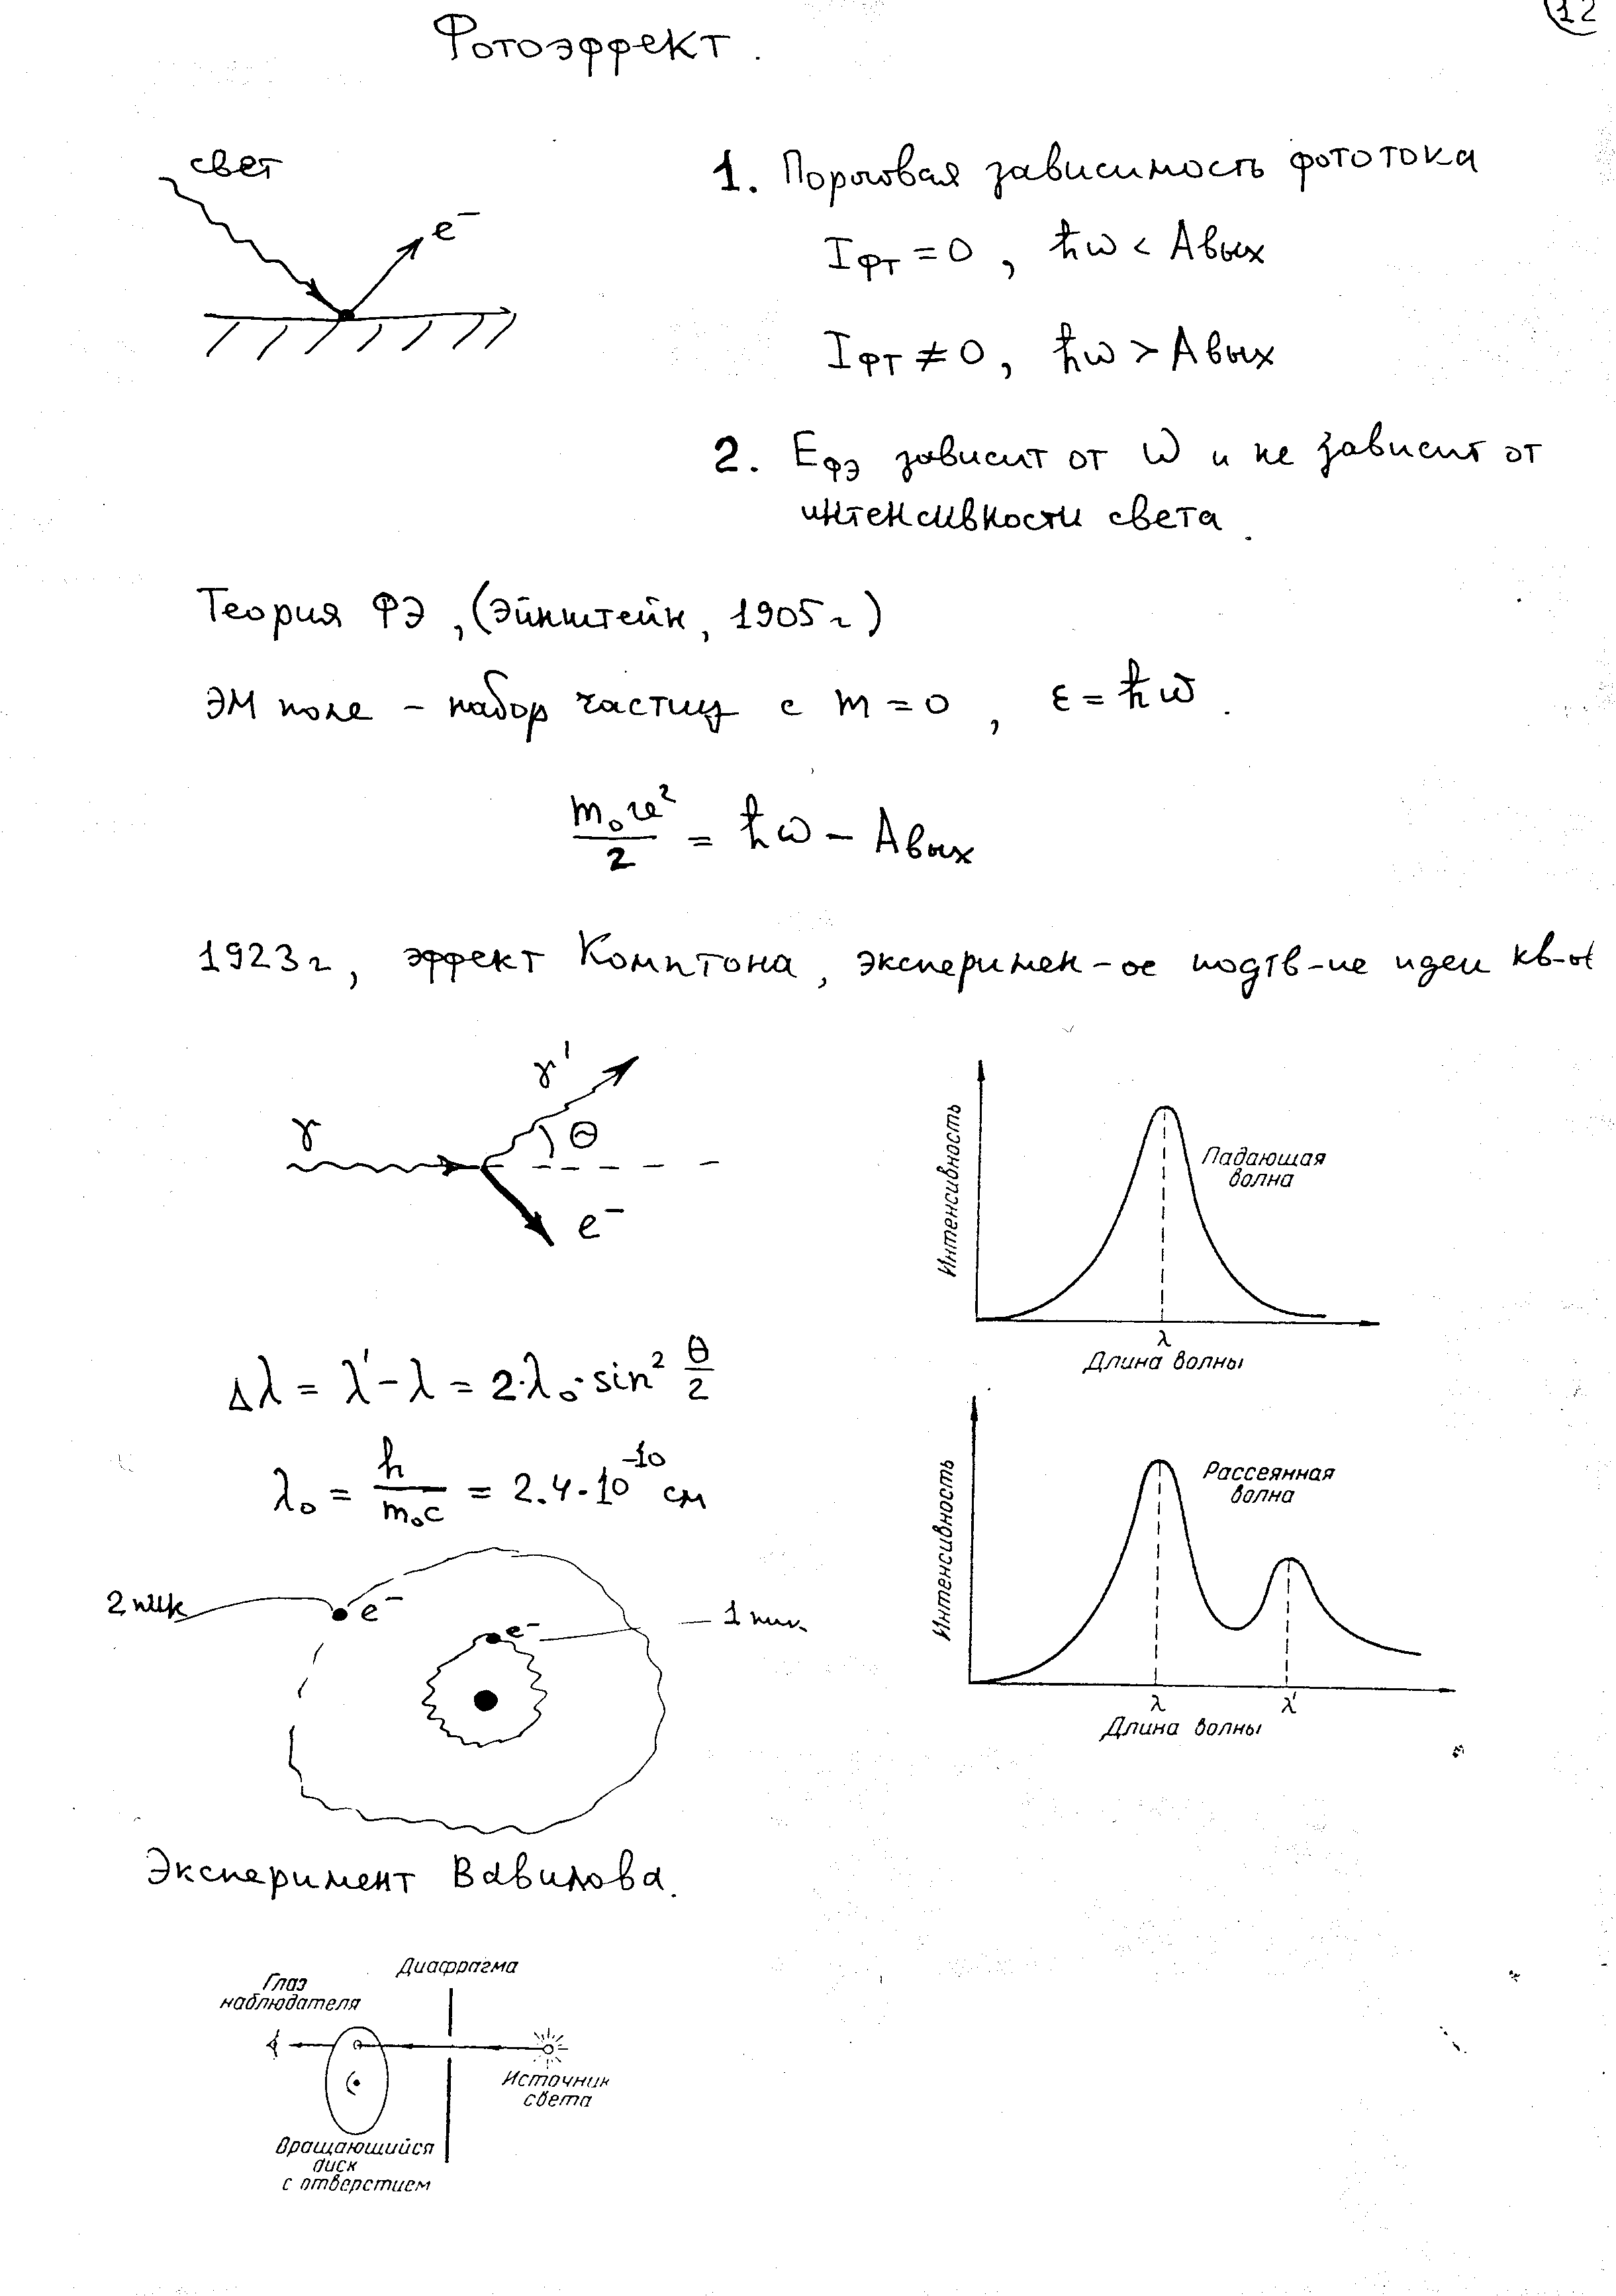 12
Фотоэффект.
свет
e⁻
1. Пороговая зависимость фототока
Iфт = 0, ħω < Aвых
Iфт ≠ 0, ħω > Aвых
2. Eфэ зависит от ω и не зависит от
интенсивности света.
Теория ФЭ, (Эйнштейн, 1905г)
ЭМ поле – набор частиц с m = 0, ε = ħω.
m₀v²/2 = ħω – Aвых
1923г, эффект Комптона, эксперимен-ое подтв-ие идеи кв-ов
γ
γ'
θ
e⁻
Интенсивность
Падающая
волна
λ
Длина волны
Δλ = λ' – λ = 2·λ₀·sin² θ/2
λ₀ = h/m₀c = 2.4·10⁻¹⁰ см
Интенсивность
Рассеянная
волна
λ λ'
Длина волны
2 пик
e⁻
e⁻
1 пик
Эксперимент Вавилова.
Диафрагма
Глаз
наблюдателя
Источник
света
Вращающийся
диск
с отверстием